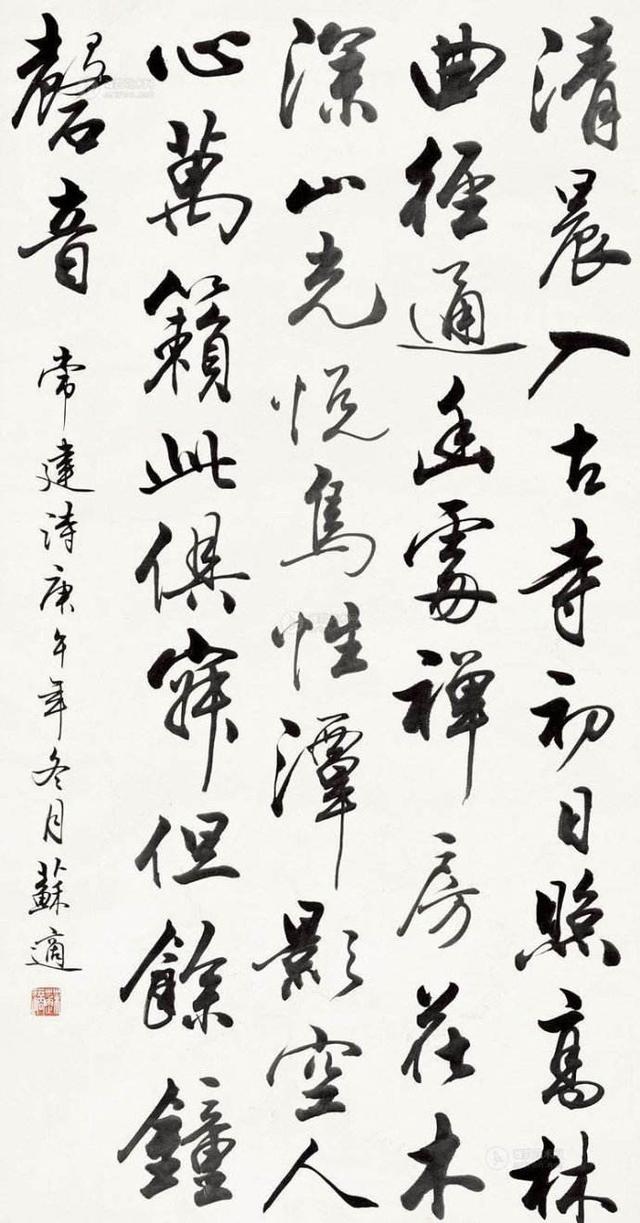 清晨入古寺初日照高林
曲徑通幽處禪房花木
深山光悅鳥性潭影空人
心萬籟此俱寂但餘鐘
磬音
常建詩庚午年冬月蘇適